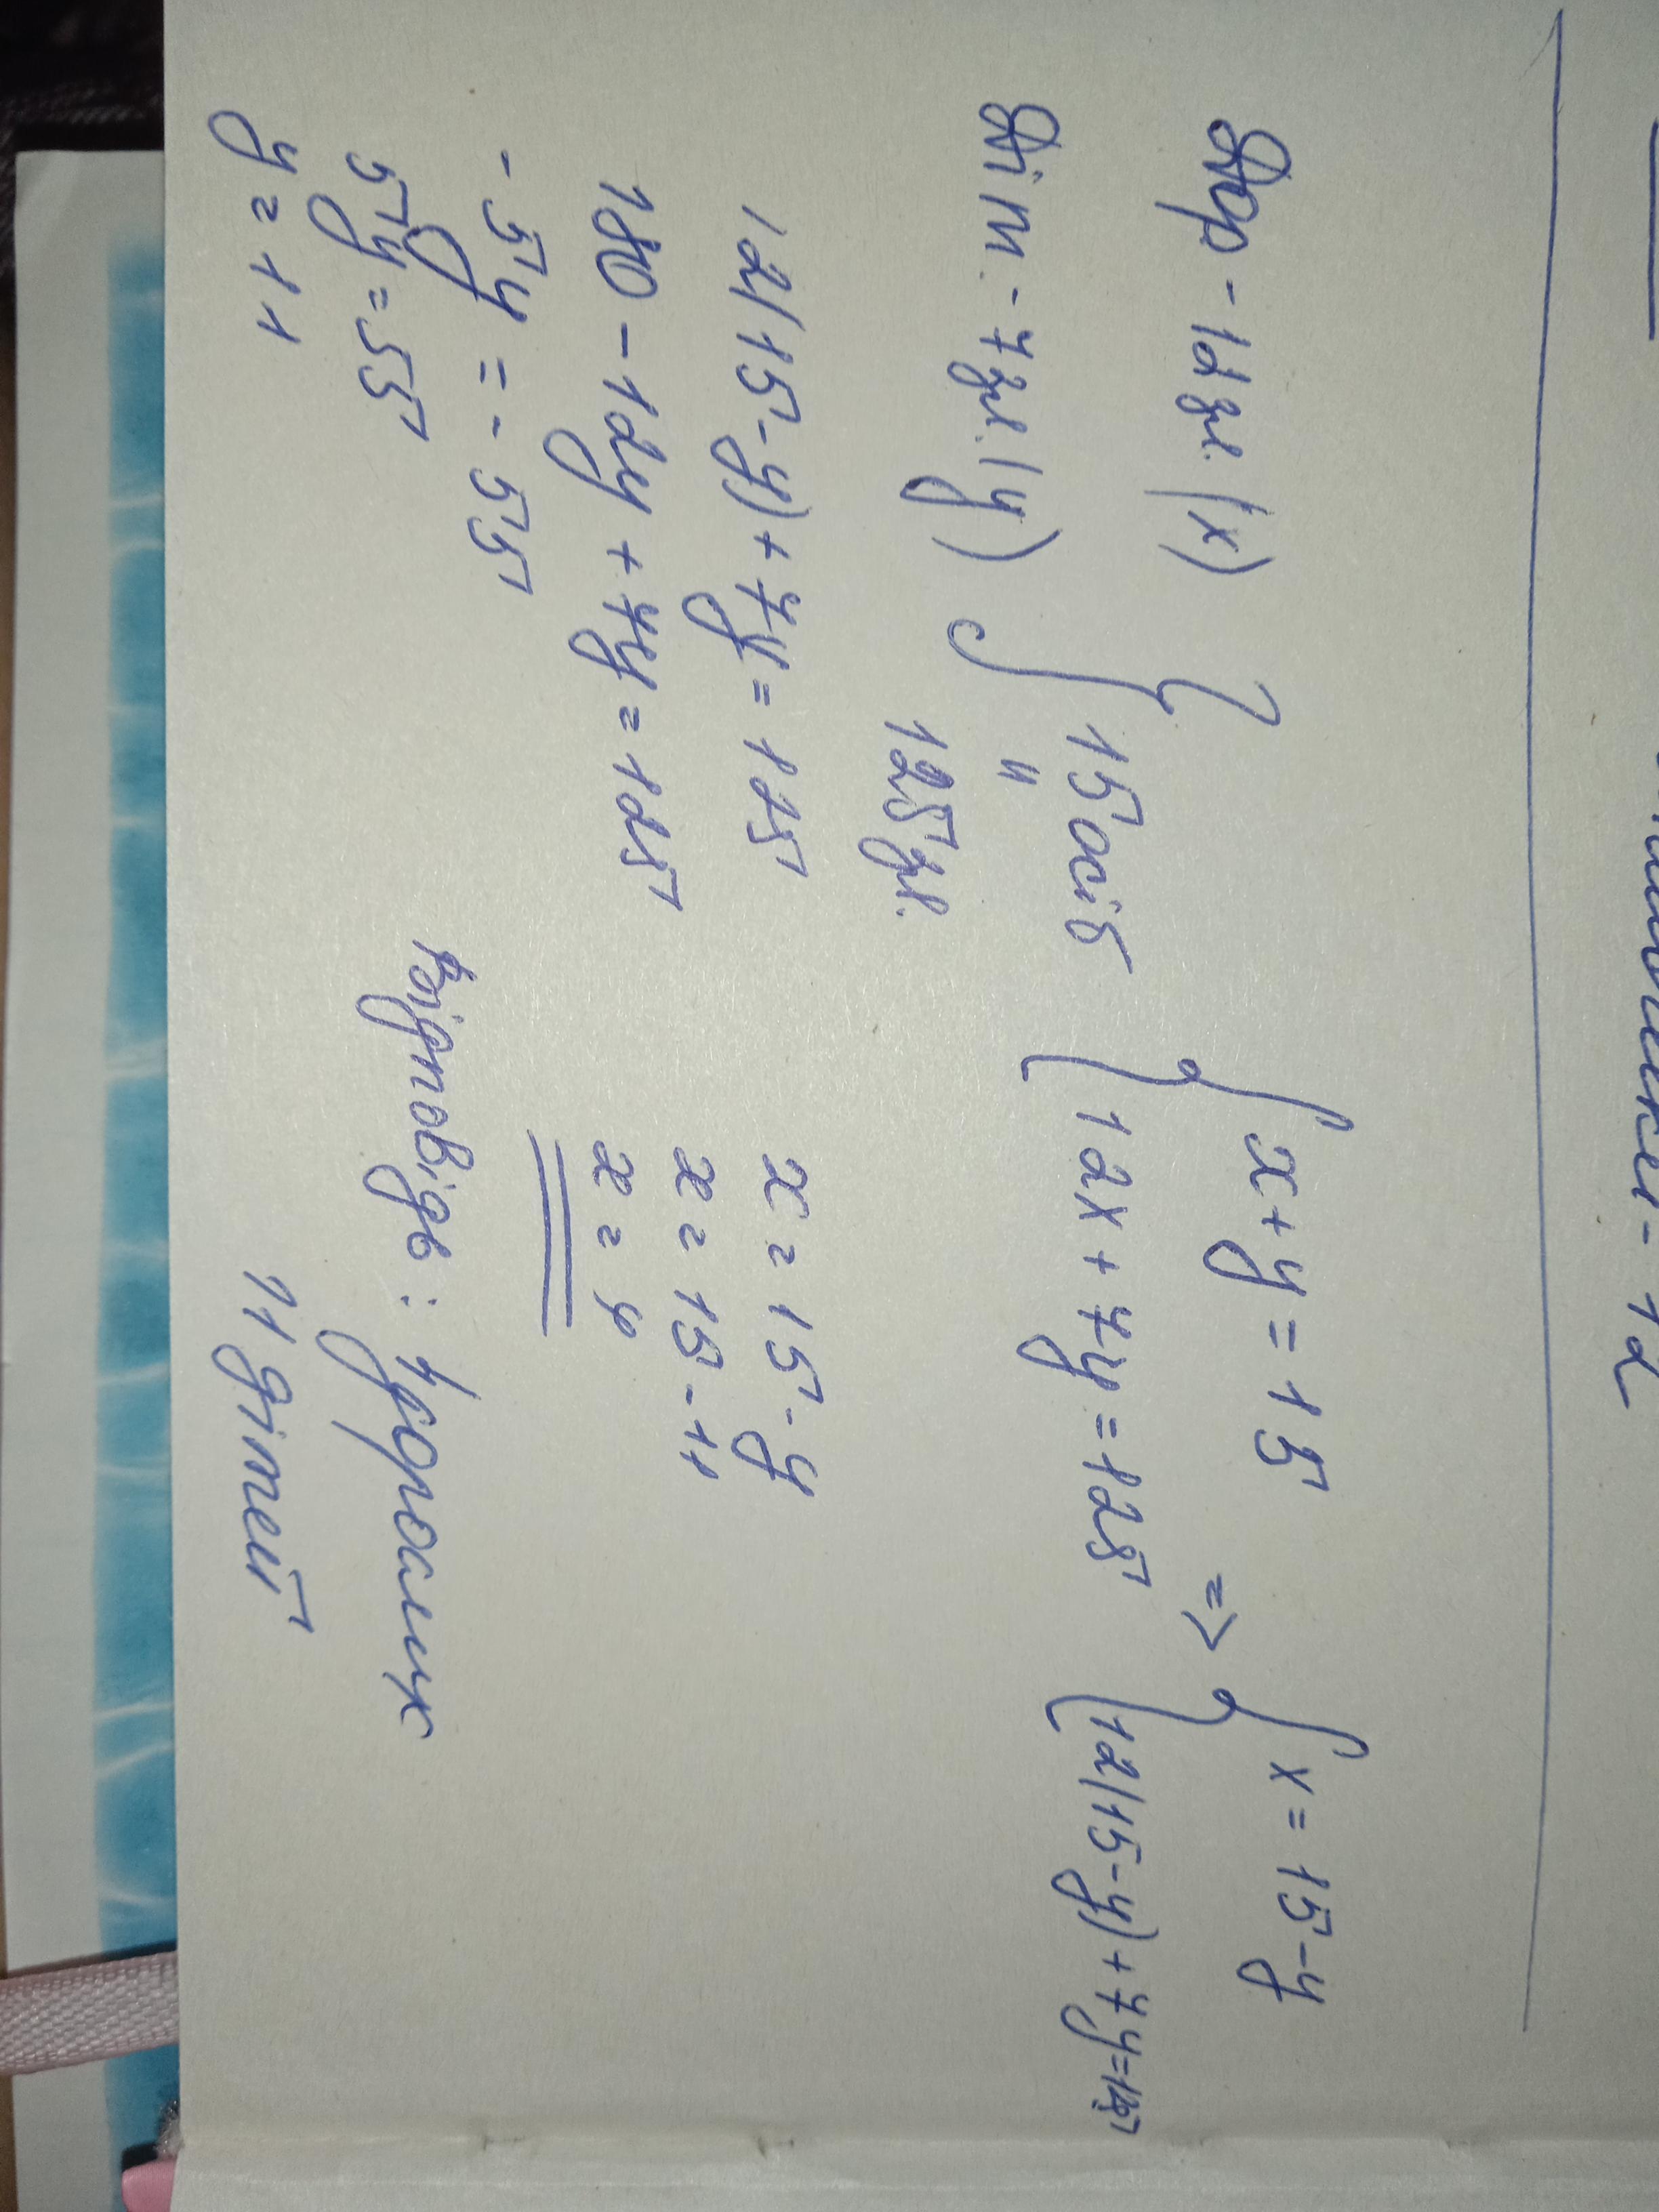 - 12
Дор - 12 зл. (x)
Діт. - 7 зл. (y)
15 осіб
"
125 зл.
{ x + y = 15
{ 12x + 7y = 125
=>
{ x = 15 - y
{ 12(15 - y) + 7y = 125
12(15 - y) + 7y = 125
180 - 12y + 7y = 125
- 5y = - 55
5y = 55
y = 11
x = 15 - y
x = 15 - 11
x = 4
Відповідь: 4 дорослих
11 дітей